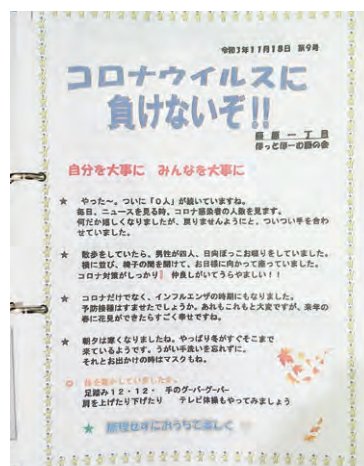 令和3年11月18日 第9号
コロナウイルスに
負けないぞ!!
原一丁目
ほっとほーむ の会
自分を大事に みんなを大事に
★ やった~。ついに「0人」が続いていますね。
毎日、ニュースを見る時、コロナ感染者の人数を見ます。
何だか嬉しくなりましたが、戻りませんようにと、ついつい手を合わ
せていました。
★ 散歩をしていたら、男性が四人、日向ぼっこお喋りをしていました。
横に並び、椅子の間を開けて、お日様に向かって座っていました。
コロナ対策がしっかり! 仲良しがいてうらやましい!!
★ コロナだけでなく、インフルエンザの時期にもなりました。
予防接種はすませたでしょうか。あれもこれもと大変ですが、来年の
春に花見ができたらすごく幸せですね。
★ 朝夕は寒くなりましたね。やっぱり冬がすぐそこまで
来ているようです。うがい手洗いを忘れずに。
それとお出かけの時はマスクもね。
○ 体を動かしていましたか。
足踏み12・12・ 手のグーパーグーパー
肩を上げたり下げたり テレビ体操もやってみましょう
★ 無理せずにおうちで楽しく